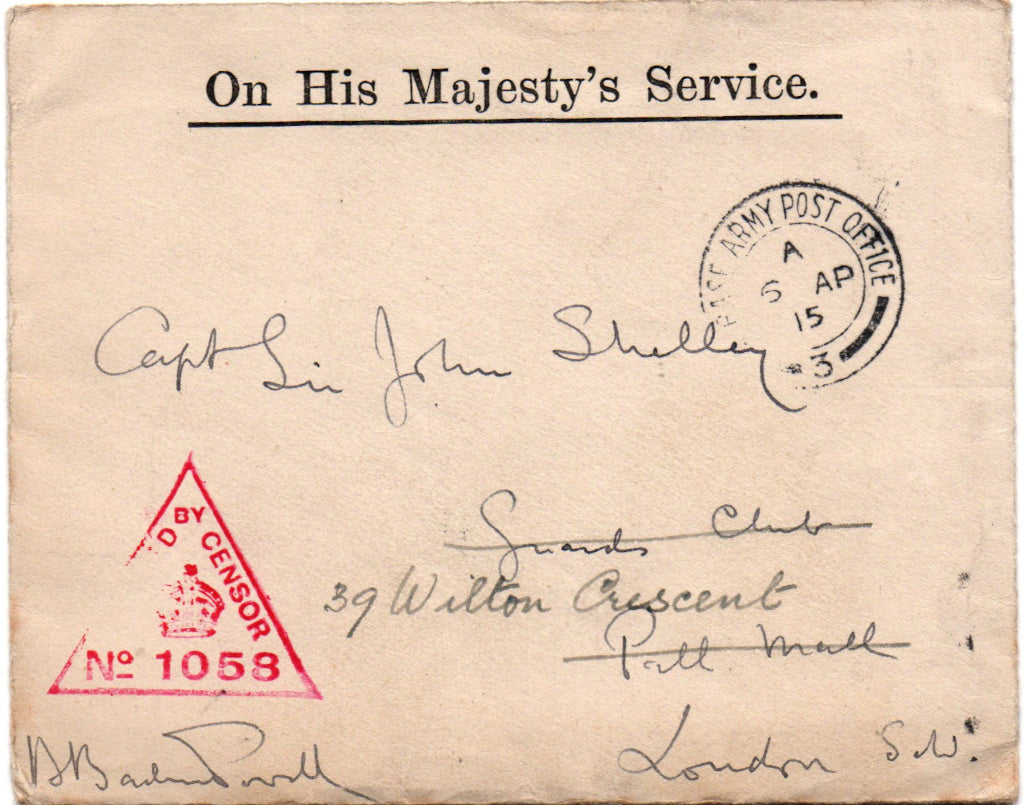 On His Majesty's Service.
BASE ARMY POST OFFICE
A
6 AP
15
3
Capt Sir John Shelley
D BY CENSOR
No 1058
Guards Club
39 Wilton Crescent
Pall Mall
London S.W.
B Baden Powell